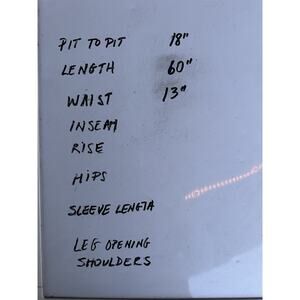 PIT TO PIT 18"
LENGTH 60"
WAIST 13"
INSEAM
RISE
HIPS
SLEEVE LENGTH
LEG OPENING
SHOULDERS